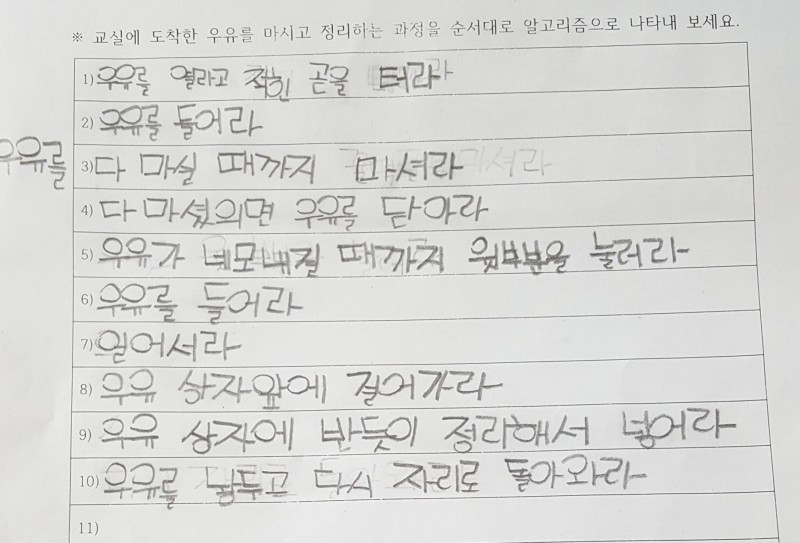 ※ 교실에 도착한 우유를 마시고 정리하는 과정을 순서대로 알고리즘으로 나타내 보세요.
1) 우유를 열라고 적힌 곧을 터라
2) 우유를 들어라
우유를
3) 다 마실 때까지 마셔라
4) 다 마셨으면 우유를 닫아라
5) 우유가 네모내질 때까지 윗부분을 눌러라
6) 우유를 들어라
7) 일어서라
8) 우유 상자앞에 걸어가라
9) 우유 상자에 반듯이 정리해서 넣어라
10) 우유를 놔두고 다시 자리로 돌아와라
11)